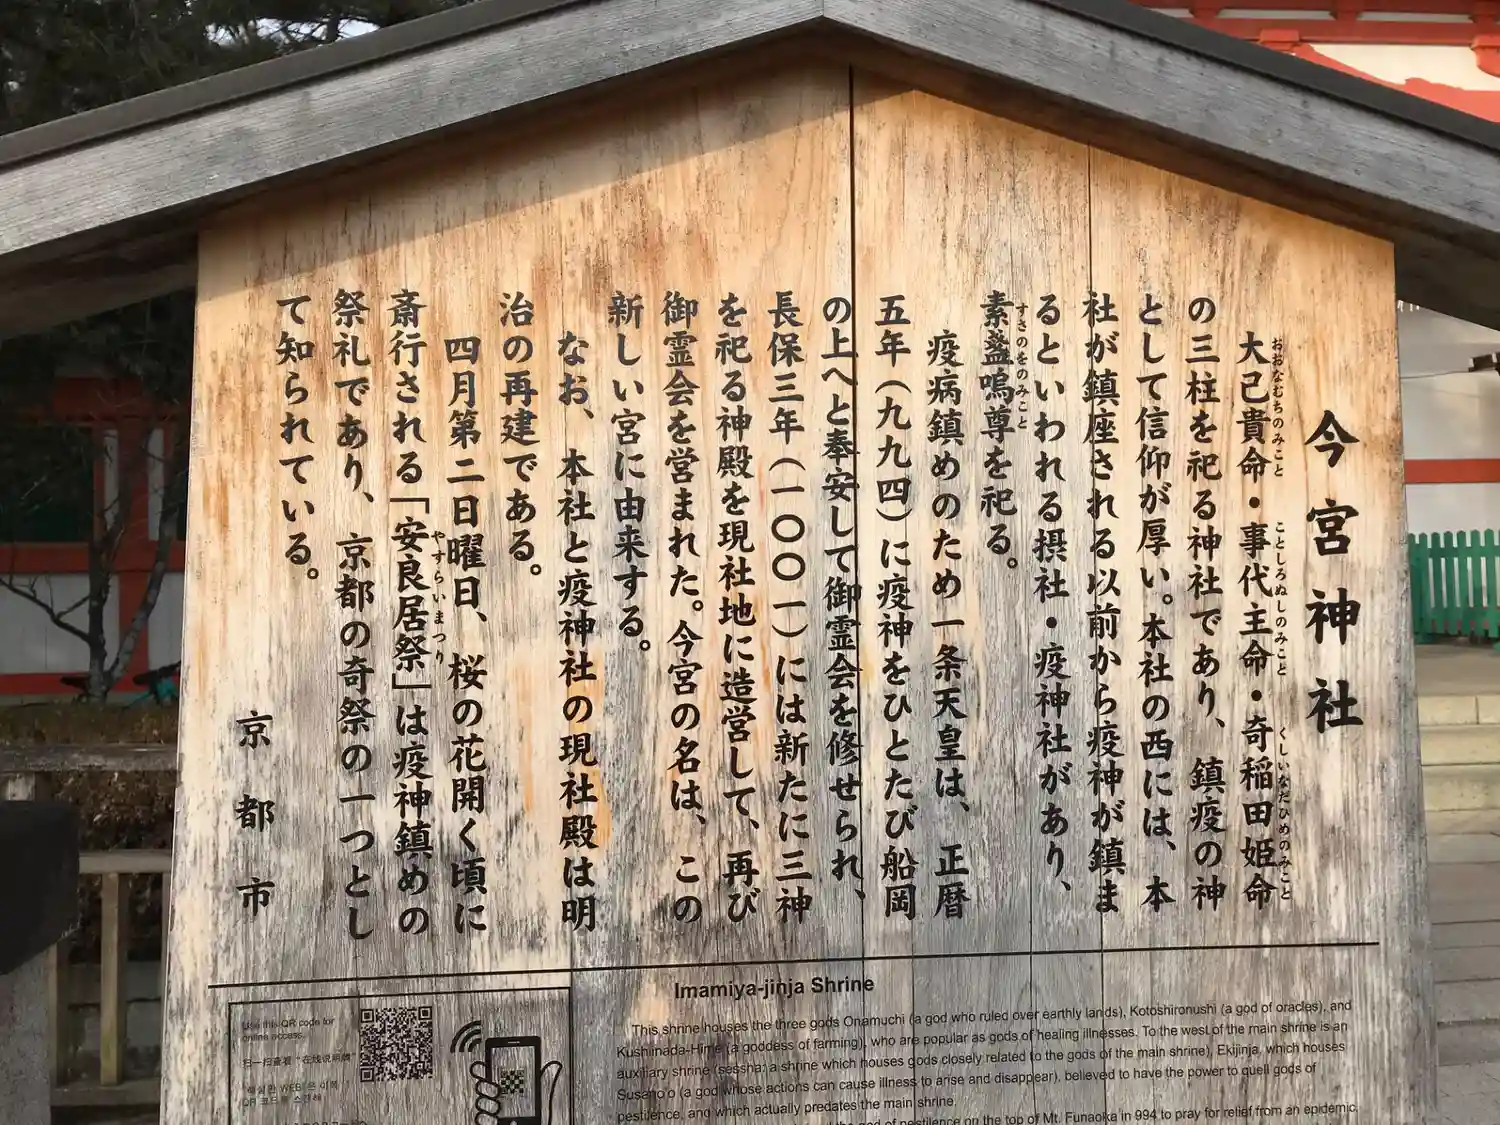 今宮神社
大己貴命・事代主命・奇稲田姫命
おおなむちのみこと
ことしろぬしのみこと
くしいなだひめのみこと
の三柱を祀る神社であり、鎮疫の神
として信仰が厚い。本社の西には、本
社が鎮座される以前から疫神が鎮ま
るといわれる摂社・疫神社があり、
素盞嗚尊を祀る。
すさのをのみこと
疫病鎮めのため一条天皇は、正暦
五年(九九四)に疫神をひとたび船岡
の上へと奉安して御霊会を修せられ、
長保三年(一〇〇一)には新たに三神
を祀る神殿を現社地に造営して、再び
御霊会を営まれた。今宮の名は、この
新しい宮に由来する。
なお、本社と疫神社の現社殿は明
治の再建である。
四月第二日曜日、桜の花開く頃に
斎行される「安良居祭」は疫神鎮めの
やすらいまつり
祭礼であり、京都の奇祭の一つとし
て知られている。
京都市
Imamiya-jinja Shrine
This shrine houses the three gods Onamuchi (a god who ruled over earthly lands), Kotoshironushi (a god of oracles), and
Kushiinada-Hime (a goddess of farming), who are popular as gods of healing illnesses. To the west of the main shrine is an
auxiliary shrine (sessha: a shrine which houses gods closely related to the gods of the main shrine), Ekijinja, which houses
Susano'o (a god whose actions can cause illness to arise and disappear), believed to have the power to quell gods of
pestilence, and which actually predates the main shrine.
the god of pestilence on the top of Mt. Funaoka in 994 to pray for relief from an epidemic.
Use this QR code for
online access.
扫一扫查看"在线说明牌"
해설판 WEB은 이쪽
QR코드를 스캔해